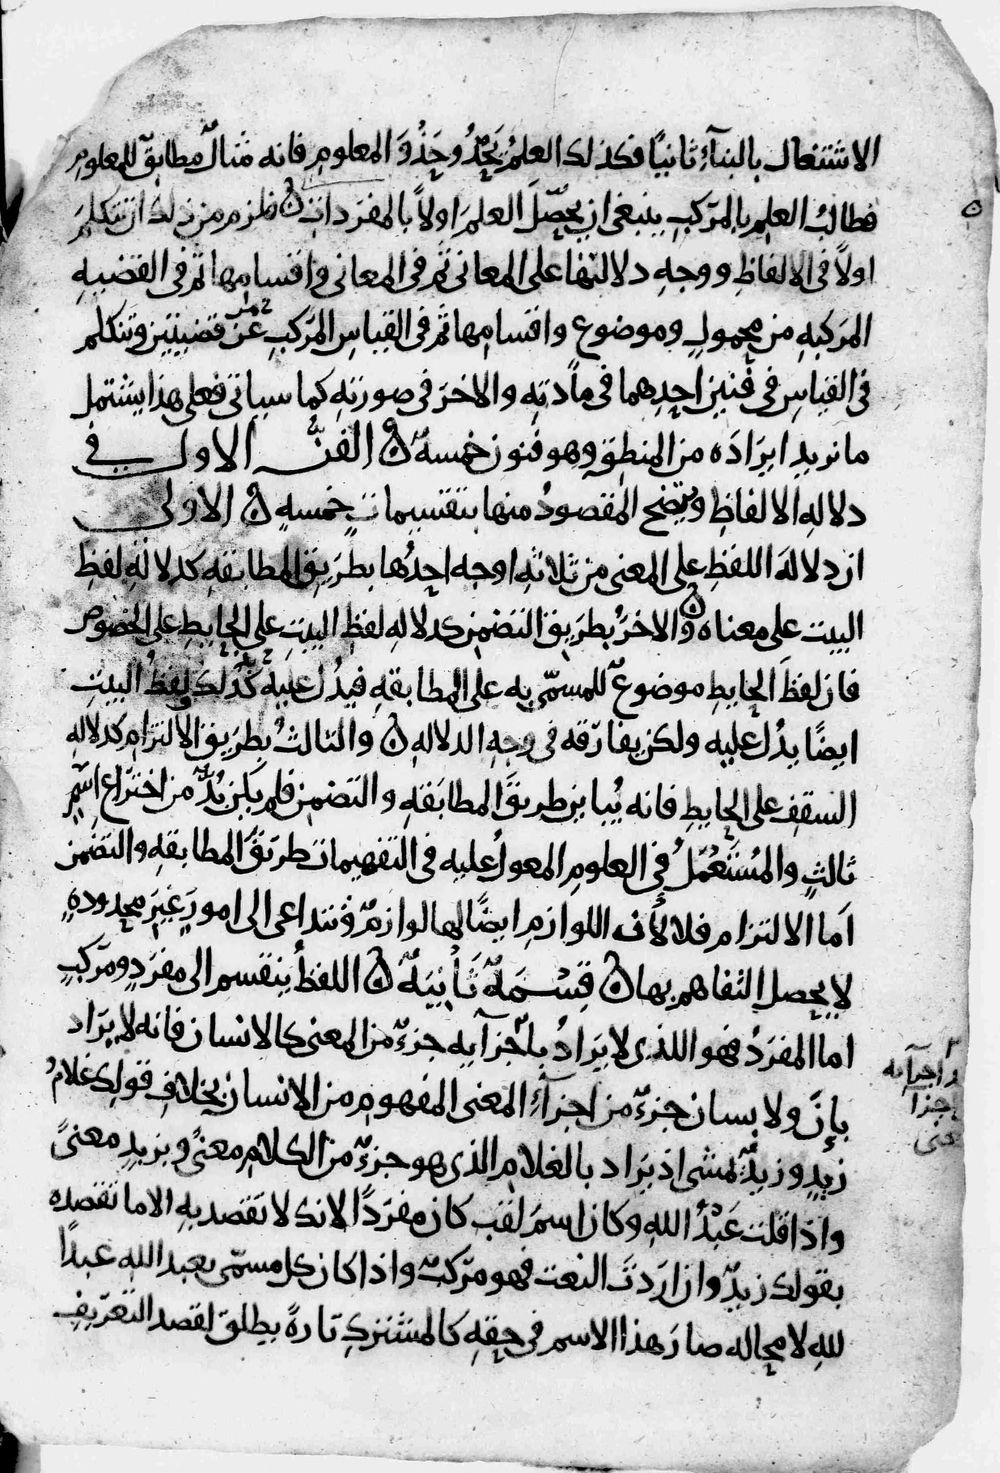 الاشتغال بالبنآءِ ثانيًا فكذلك العلمُ يَحْذُو حَذْوَ المعلومِ فانه مثالٌ مطابقٌ للمعلومِ
فطالبُ العلمِ بالمرّكبِ ينبغى ان يحصّلَ العلمَ اولاً بالمفرداتِ فلزم من ذلك ان نتكلمَ
اولاً فى الالفاظِ ووجهِ دلالتها على المعانى ثم فى المعانى واقسامِها ثم فى القضيهِ
المرَكبهِ من محمولٍ وموضوعٍ واقسامِها ثم فى القياسِ المرَكبِ عن قضيتين ونتكلم
فى القياسِ فى فنين احدِهما فى مادّتهِ والاخرَ فى صورتهِ كما سياتى فعلى هذا يشتمل
ما نريد ايرَادَه من المنطقِ وهو فنون خمسهٌ الفنُّ الاول فى
دلالهِ الالفاظِ ويتضح المقصودُ منها بتقسيماتٍ خمسهٍ الاولى
ان دلالهَ اللفظِ على المعنى من ثلاثهِ اوجه احدُها بطرَيق المطابقهِ كدلالهِ لفظِ
البيت على معناه والاخرُ بطرَيق التضمن كدلالهِ لفظِ البيتِ على الحايطِ على الخصوصِ
فان لفظَ الحايطِ موضوعٌ للمسمّى به على المطابقهِ فيدُل عليه كذلك ولفظُ البيتِ
ايضًا يدُل عليه ولكن يفارّقه فى وجهِ الدلالهِ والثالثُ بطرَيق الالتزام كدلالهِ
السقفِ على الحايطِ فانه يُباين طريقَ المطابَقهِ والتضمن فلم يكن بُدٌّ من اختراع اسمٍ
ثالثٍ والمُستَعْمَلُ فى العلومِ المعولُ عليه فى التفهيمات طرَيقُ المطابقهِ والتضمن
اَما الالتزام فلا لأن اللوازمِ ايضًا لها لوازمٌ فتتداعى الى امورٍ غيرَ محدودهٍ
لا يحصل التفاهم بها قِسْمَةٌ ثَانِيَهٌ اللفظُ ينقسم الى مفرَدٍ ومرّكبٍ
اما المفرَدُ فهو اللذى لا يرَادُ باَجْزآيه جزءٌ من المعنى كالانسان فانه لا يرَاد
بإنَ ولا بسان جزءٌ من اجزآءِ المعنى المفهومِ من الانسان بخلافِ قولك غلامُ
زيدٍ وزيدٌ يمشى اذ يرَاد بالغلامِ الذى هو جزءٌ من الكلامِ معنىً وبزيدٍ معنىً
واذا قلت عَبْدُ اللهِ وكان اسمَ لقب كان مفرَدًا لانك لا تقصد بهِ الا ما تقصده
بقولك زيدٌ وان ارَدتَ النعت فهو مرّكبٌ واذا كان كل مسمّى بعبد اللهِ عبدًا
للهِ لا محاله صارَ هذا الاسم فى حقهِ كالمشترَكِ تارةً يطلق لقصد التعرَيفِ